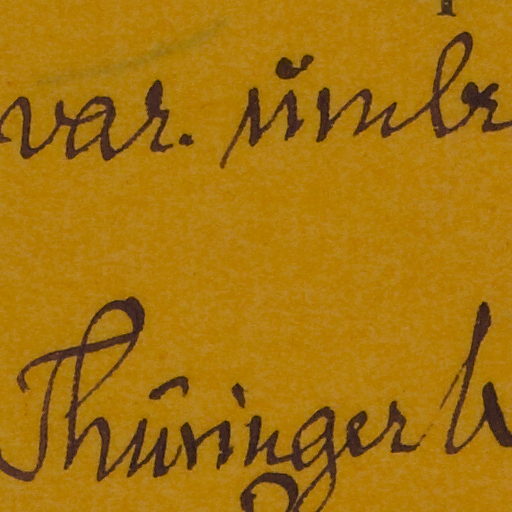 var. umbr
Thüringer W